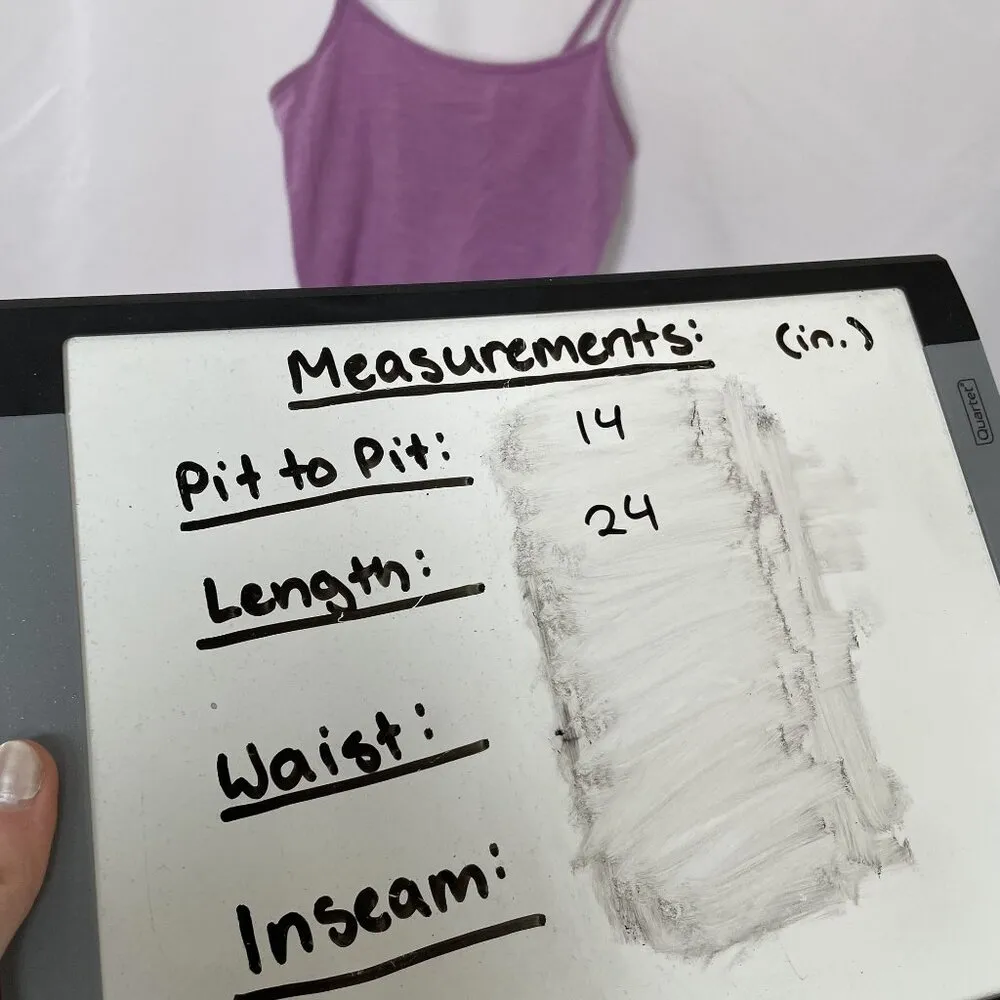 Measurements: (in.)
Pit to Pit: 14
Length: 24
Waist:
Inseam:
Quartet